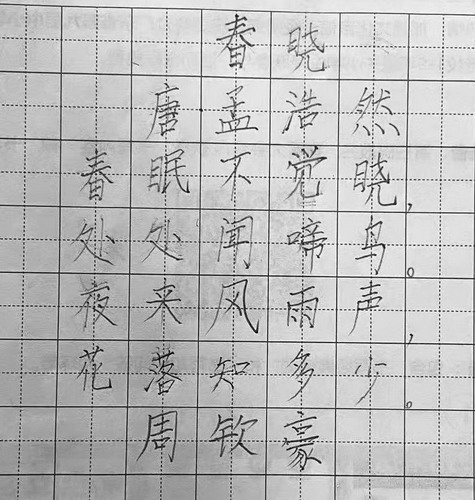 春晓
唐孟浩然
春眠不觉晓，
处处闻啼鸟。
夜来风雨声，
花落知多少。
周钦豪